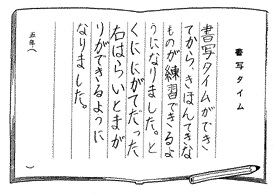 書写タイム
書写タイムができ
てから、きほんてきな
ものが練習できるよ
うになりました。と
くににがてだった
右はらいとまが
りができるように
なりました。
五年（　）